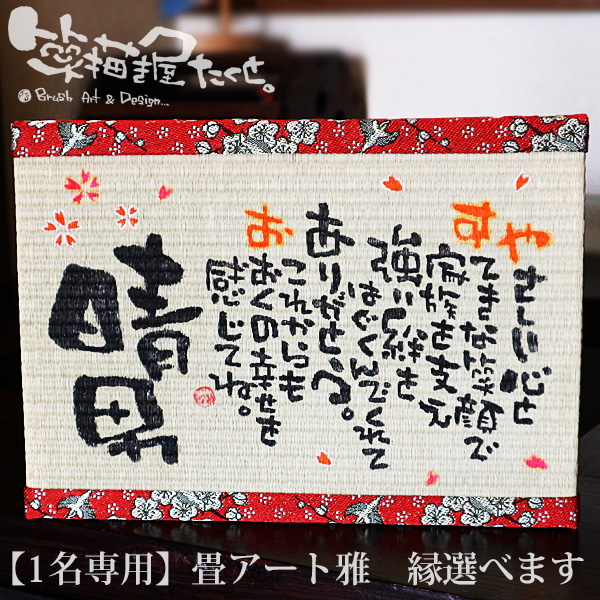 たくと。
Brush Art & Design...
やさしい心と
すてきな笑顔で
家族を支え
強い絆を
はぐくんでくれて
ありがとう。
これからも
おおくの幸せを
感じてね。
晴男
【1名専用】畳アート雅　縁選べます